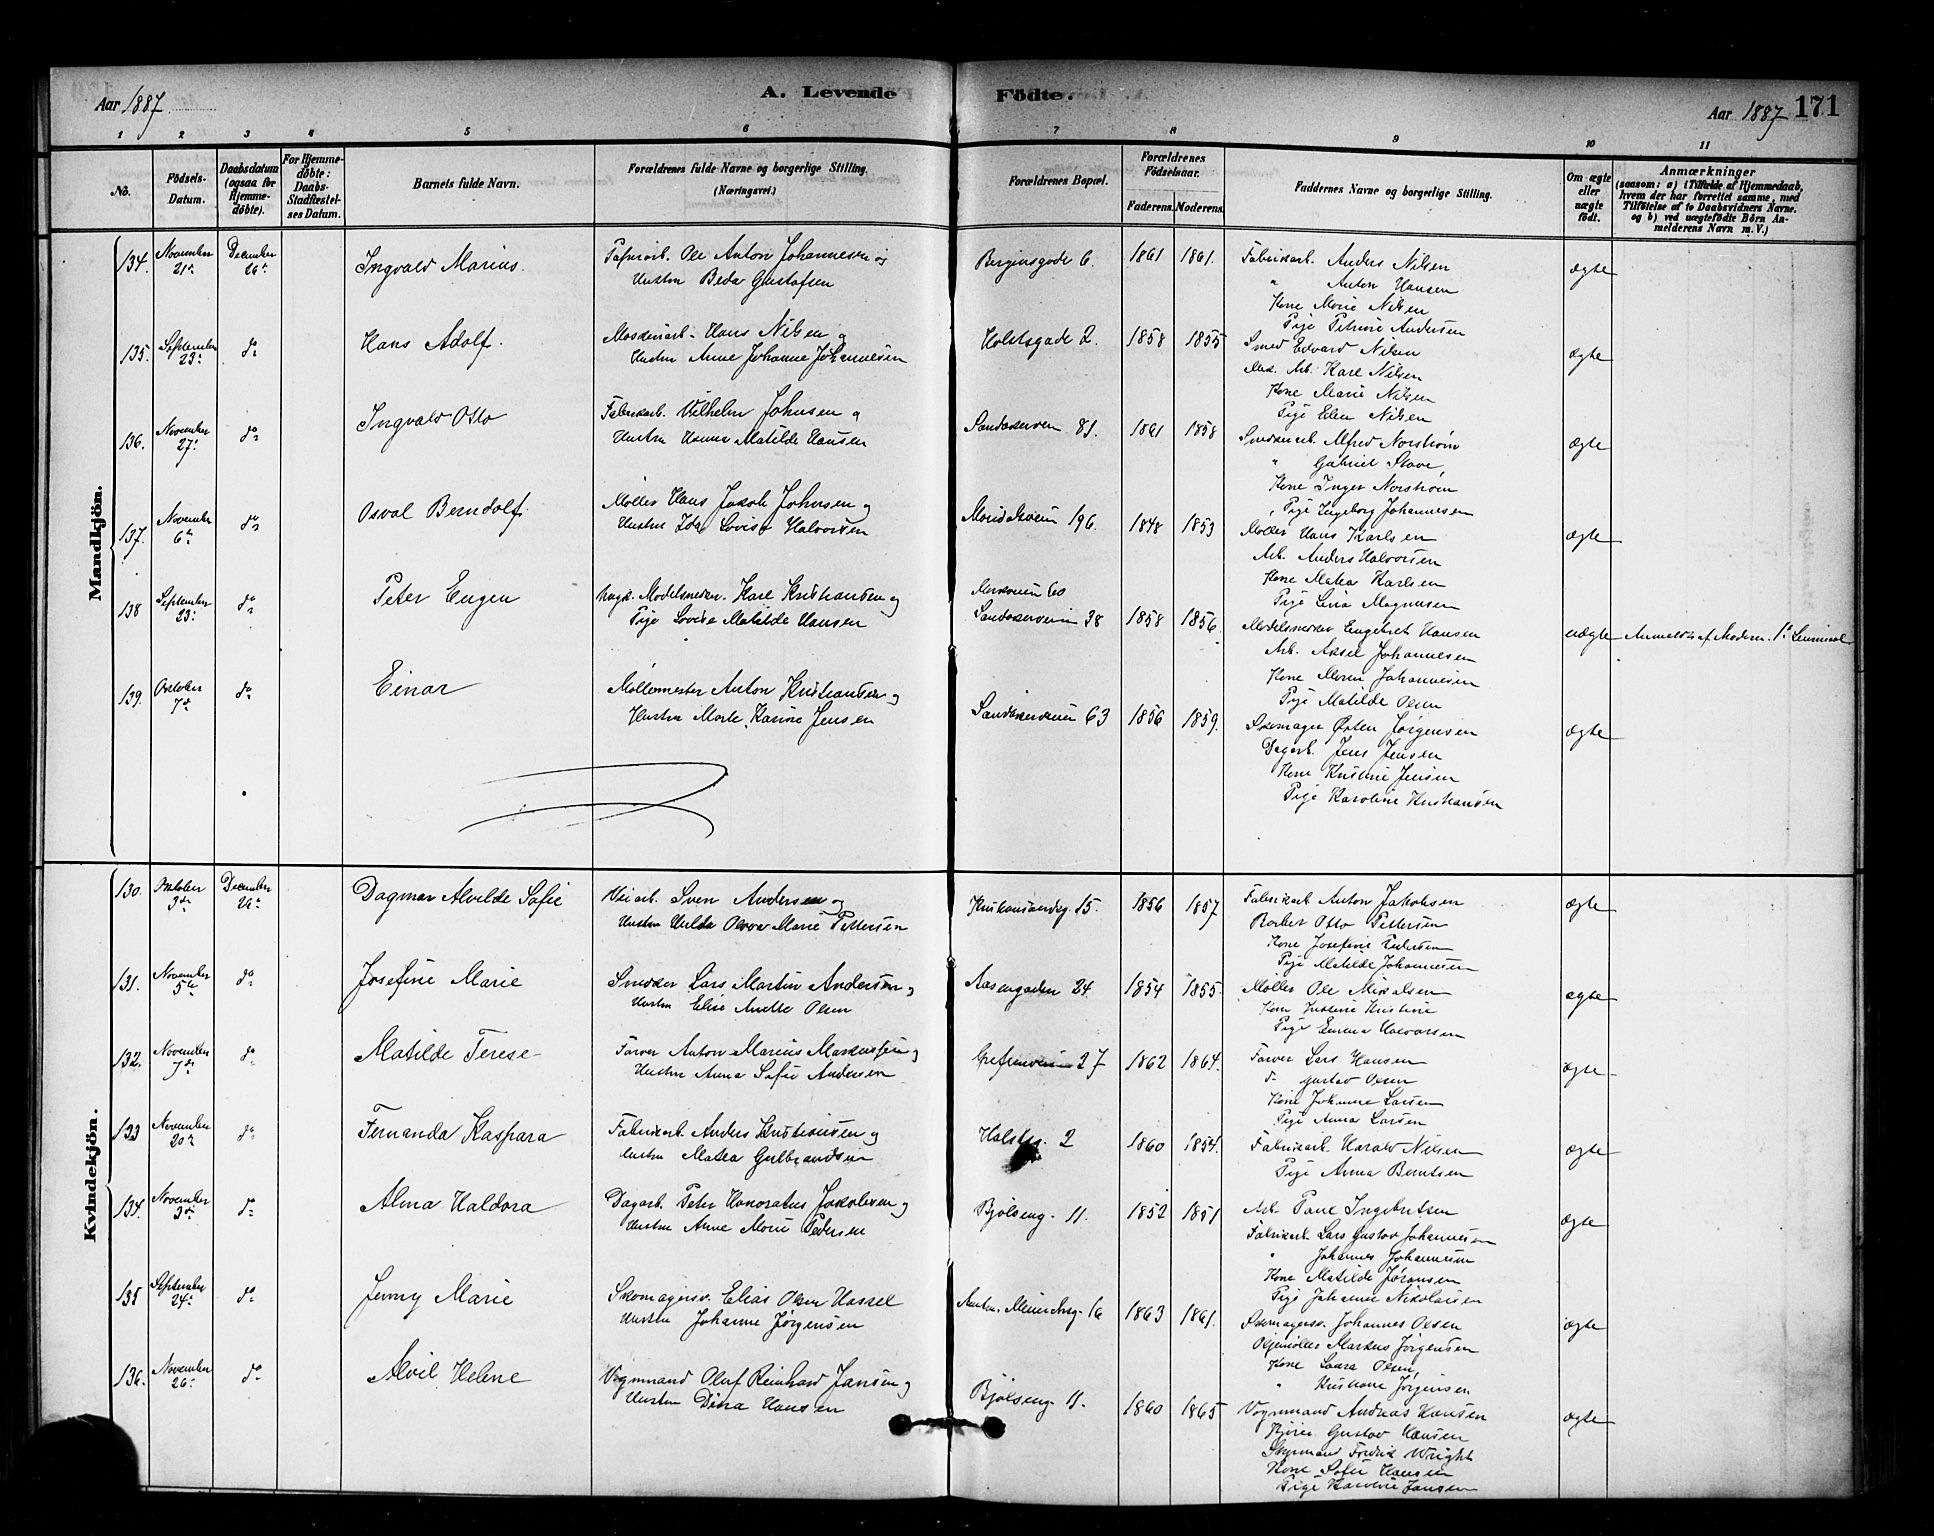 Aar 1887.
A. Levende
Födte.
Aar 1887
171
1 2 3 4 5 6 7 8 9 10 11
No.
Födsels-
Datum.
Daabsdatum
(ogsaa for
Hjemme-
döbte).
For Hjemme-
döbte:
Daabs-
Stadfæstel-
ses Datum.
Barnets fulde Navn.
Forældrenes fulde Navne og borgerlige Stilling.
(Næringsvei.)
Forældrenes Bopæl.
Forældrenes
Födselsaar.
Faderens. Moderens.
Faddernes Navne og borgerlige Stilling.
Om ægte
eller
uægte
födt.
Anmærkninger
(saasom: a) i Tilfælde af Hjemmedaab,
hvem der har forrettet samme, med
Tilföielse af to Daabsvidners Navne.
og b) ved uægtefödte Börn An-
melderens Navn m.V.)
Mandkjön.
134. November 21de December 26de Ingvald Marius.
Ole Anton Johannesen og
Hustru Beda Gustafsen
6. 1861 1861.
Fabrikarb. Anders Nilsen
" Anton Hansen
Kone Marie Nilsen
Pige Petrine Andersen
ægte
135. September 23de do Hans Adolf.
Maskinarb. Hans Nilsen og
Hustru Anne Johanne Johannesen
Holstsgade 2. 1858 1855
Smed Edvard Nilsen
Karl Nilsen
Kone Marie Nilsen
Pige Elen Nilsen
ægte
136. November 27de do Ingvald Otto
Fabrikarb. Vilhelm Johnsen og
Hustru Hanna Matilde Hansen
Sandakerveien 81. 1861 1858
Snedkerarb. Alfred Norstrøm
" Gabriel Stave,
Kone Inger Norstrøm
Pige Ingeborg Johannesen
ægte
137. November 6te do Osval Berndolf.
Møller Hans Jakob Johnsen og
Hustru Ida Lovise Halvorsen
Maridalsveien 196. 1848 1853
Møller Hans Karlsen
Arb. Anders Halvorsen
Kone Matea Karlsen
Pige Lina Magnusen
ægte
138 September 23de do Peter Eugen
Ungk. Modelsnedker. Karl Kristiansen og
Pige Lovise Matilde Hansen
60
Sandakerveien 38 1858 1856.
Modelsnedker Engebret Hansen
Arb. Aksel Johannesen
Kone Maren Johannesen
Pige Matilde Olsen
uægte
Anmeldt af Moderen. 1ste Leiermaal
139. Oktober 7de do Einar
Møllemester Anton Kristiansen og
Hustru Marte Karine Jensen
Sandakerveien 63 1856 1859.
Skomager Østen Jørgensen
Dagarb. Jens Jensen
Kone Kristine Jensen
Pige Karoline Kristiansen
ægte
Kvindekjön.
130. Oktober 3de December 26de Dagmar Alvilde Sofie
Veiarb. Sven Andersen og
Hustru Hilda Marie Pettersen
Kristiansandsg. 15. 1856 1857
Fabrikarb Anton Jakobsen
Barber Otto Pettersen
Kone Josefine Pedersen
Pige Matilde Johannesen
ægte
131. November 5te do Josefine Marie
Snedker Lars Martin Andersen og
Hustru Elise Anette Olsen
Aasengaden 24. 1854 1855.
Møller Ole Mikalsen
Kone Justine Kristine
Pige Emma Halvorsen
ægte
132. November 7de do Matilde Terese
Farver Anton Marius Markussen og
Hustru Anna Sofie Andersen
Grefsenveien 27 1862 1864.
Farver Lars Hansen
do Gustav Olsen
Kone Johanne Larsen
Pige Anna Larsen
ægte
133 November 20de do Fernanda Kaspara
Fabrikarb. Anders Kristiansen og
Hustru Matea Gulbrandsen
Holstsg. 2 1860 1854.
Fabrikarb Harald Nilsen
Pige Anna Berntsen
ægte
134. November 3de do Alma Haldora
Dagarb. Peter Honoratus Jakobsen og
Hustru Anne Marie Pedersen
Bjølseng. 11. 1852 1851
Arb. Paul Ingebretsen
Fabrikarb. Lars Gustav Johannesen
" Johannes Johannesen
Kone Matilde Jøransen
Pige Johanne Nikolaisen
ægte
135 September 24de do Jenny Marie
Skomagersv. Elias Olsen Hassel
Hustru Johanne Jørgensen
16 1863 1861.
Skomagersv. Johannes Olsen
Oljemøller Markus Jörgensen
Kone Laura Olsen,
" Kristiane Jørgensen
ægte
136. November 26de do Alvil Helene
Vognmand Oluf Reinhard Jansen og
Hustru Dina Hansen
Bjølseng. 11. 1860 1865
Vognmand Andreas Hansen
Gustav Hansen
Styrmand Fredrik Wright
Kone Sofie Hansen
Pige Karoline Jansen
ægte